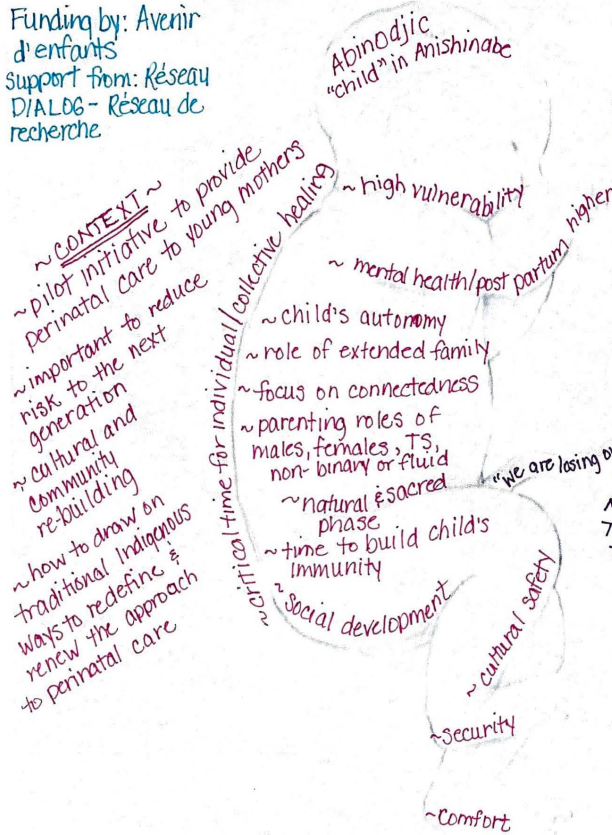 Funding by: Avenir
d'enfants
Support from: Réseau
DIALOG - Réseau de
recherche
Abinodjic
"child" in Anishinabe
~CONTEXT~
~pilot initiative to provide
perinatal care to young mothers
~important to reduce
risk to the next
generation
~cultural and
community
re-building
~how to draw on
traditional Indigenous
ways to redefine &
renew the approach
to perinatal care
~critical time for individual/collective healing
~high vulnerability
~mental health/post partum higher
~child's autonomy
~role of extended family
~focus on connectedness
~parenting roles of
males, females, TS,
non-binary or fluid
~natural & sacred
phase
~time to build child's
immunity
~social development
"we are losing
~cultural safety
~security
~comfort